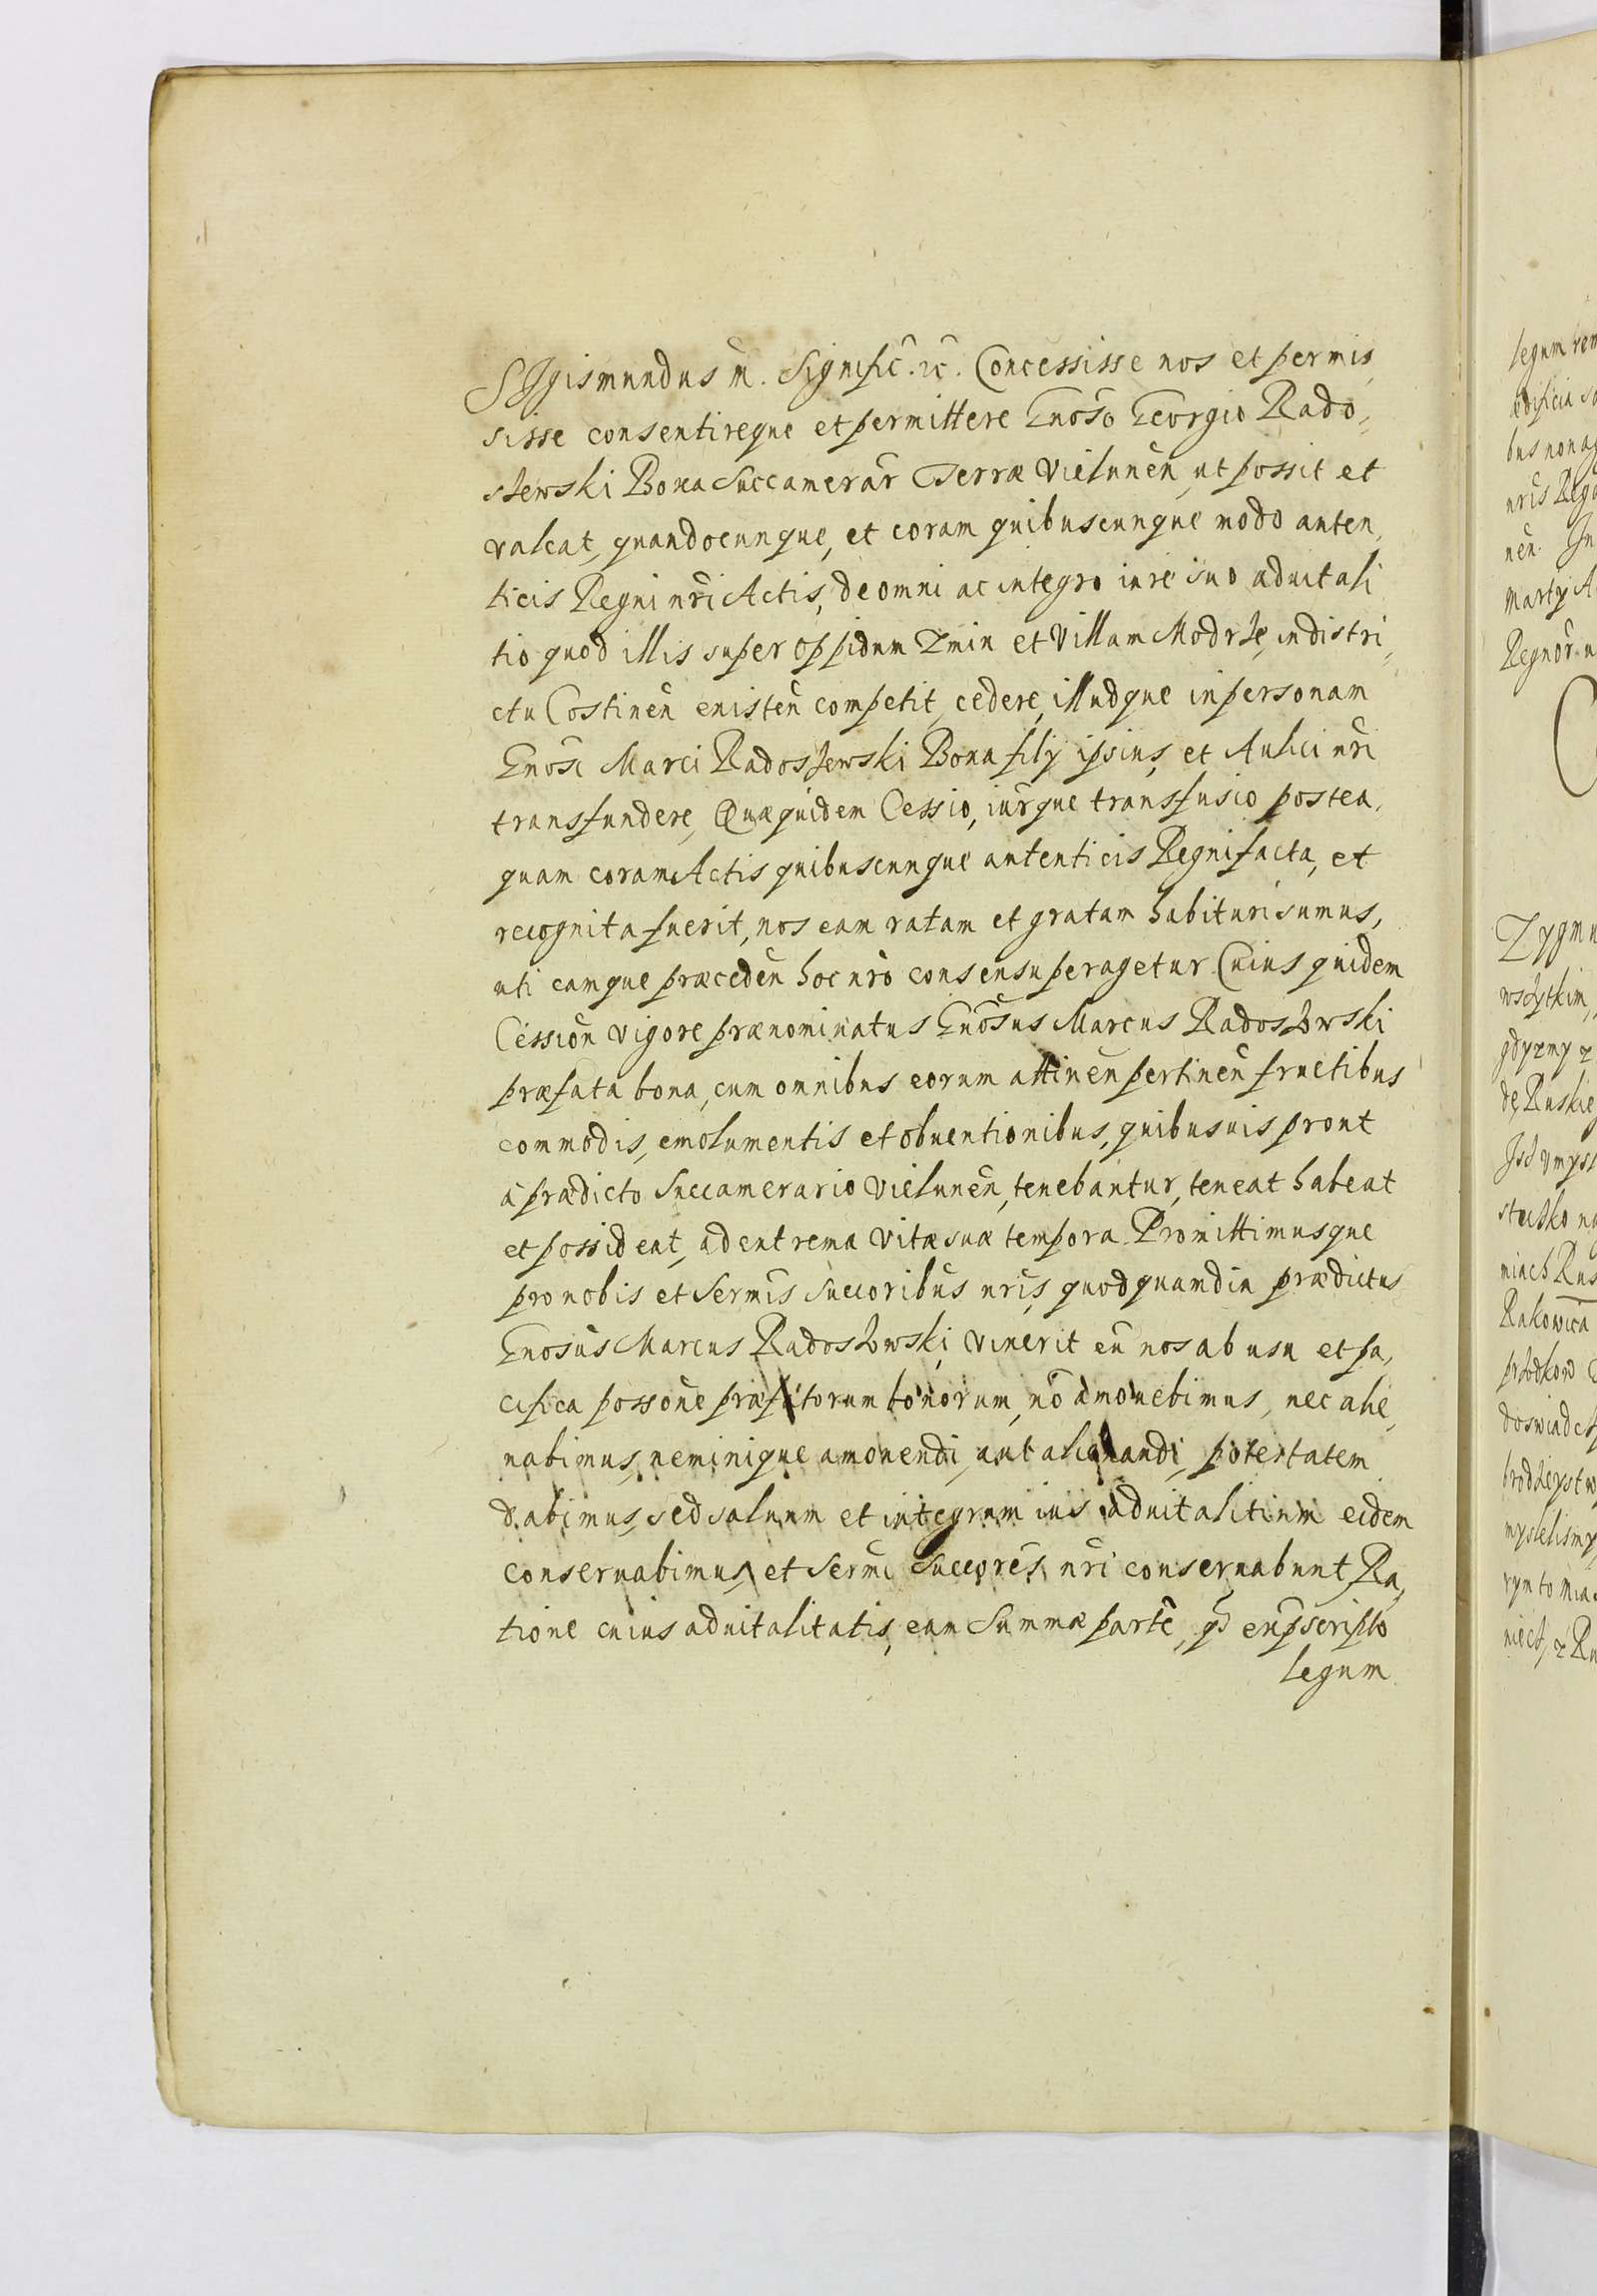 SIgismundus m. Signific̃. ꝛc̃. Concessisse nos et permis,
sisse consentireque et permittere Gnõso Georgio Rado,,
szewski Boxa Succamerãr Terræ Vielunẽn, ut possit et
valeat, quandocunque, et coram quibuscunque modo auten,
ticis Regni nr̃i Actis, de omni ac integro iure suo aduitali
tio quod illis super oppidum Zmin et Villam Modrze, in distri,,
ctu Costinẽn existẽn competit, cedere, illudque in personam
Gnõsi Marci Radoszewski Boxa filÿ ipsius, et Aulici nr̃i
transfundere, Quæquidem Cessio, iurq̃ue transfusio postea,
quam coram Actis quibuscunque autenticis Regni facta, et
recognita fuerit, nos eam ratam et gratam habituri sumus,
uti eamque præcedẽn hoc nr̃o consensu peragetur. Cuius quidem
Cessiõn vigore prænominatus Gnõsus Marcus Radoszowski
præfata bona, cum omnibus eorum attinẽn pertinẽn fructibus
commodis, emolumentis et obuentionibus, quibusuis prout
à prædicto Succamerario Vielunẽn, tenebantur, teneat habeat
et possideat, ad extrema Vitæ suæ tempora. Promittimusque
pro nobis et Serm̃is Succoribũs nr̃is, quod quamdiu prædictus
Gnosũs Marcus Radoszowski, vixerit eũ nos ab usu et pa,
cifica possõne præfatorum bonorum, nõ amouebimus, nec alie,
nabimus, neminique amouendi, aut alienandi, potestatem
dabimus, sed saluum et integrum ius aduitalitium eidem
conseruabimus, et Serm̃i Succorẽs nr̃i conseruabunt Ra,
tione cuius aduitalitatis, eam Summæ partẽ, q̃d ex p̃scripto
legum